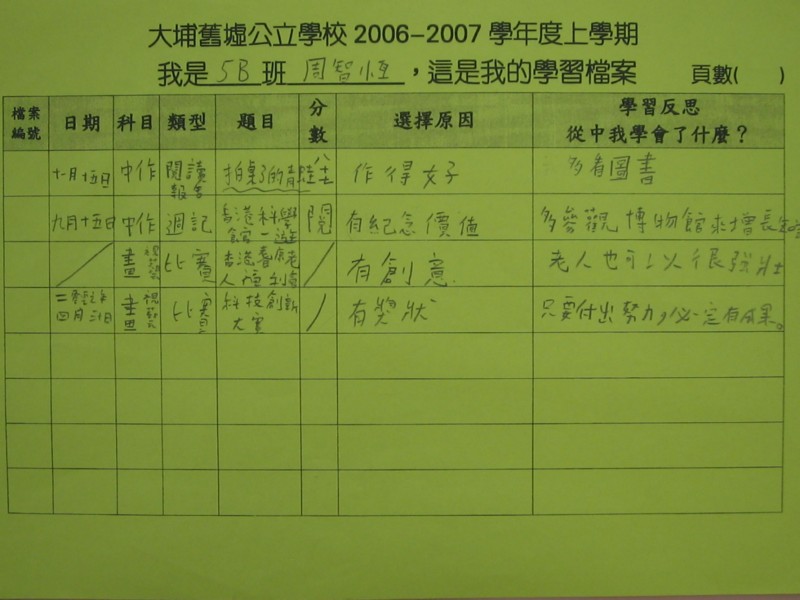 大埔舊墟公立學校 2006–2007 學年度上學期
我是 5B 班 周智恒 ，這是我的學習檔案 頁數( )
檔案編號 日期 科目 類型 題目 分數 選擇原因 學習反思
從中我學會了什麼？
十一月十五日 中作 閱讀報告 拍桌子的青蛙 作得好 多看圖書
九月十五日 中作 週記 香港科學館一遊 閱 有紀念價值 多參觀博物館來增長知識
畫 視藝 比賽 香港 老人 / 有創意 老人也可以很強壯
四月三日 畫 視藝 比賽 科技創新大賽 / 有獎狀 只要付出努力,必定有成果。